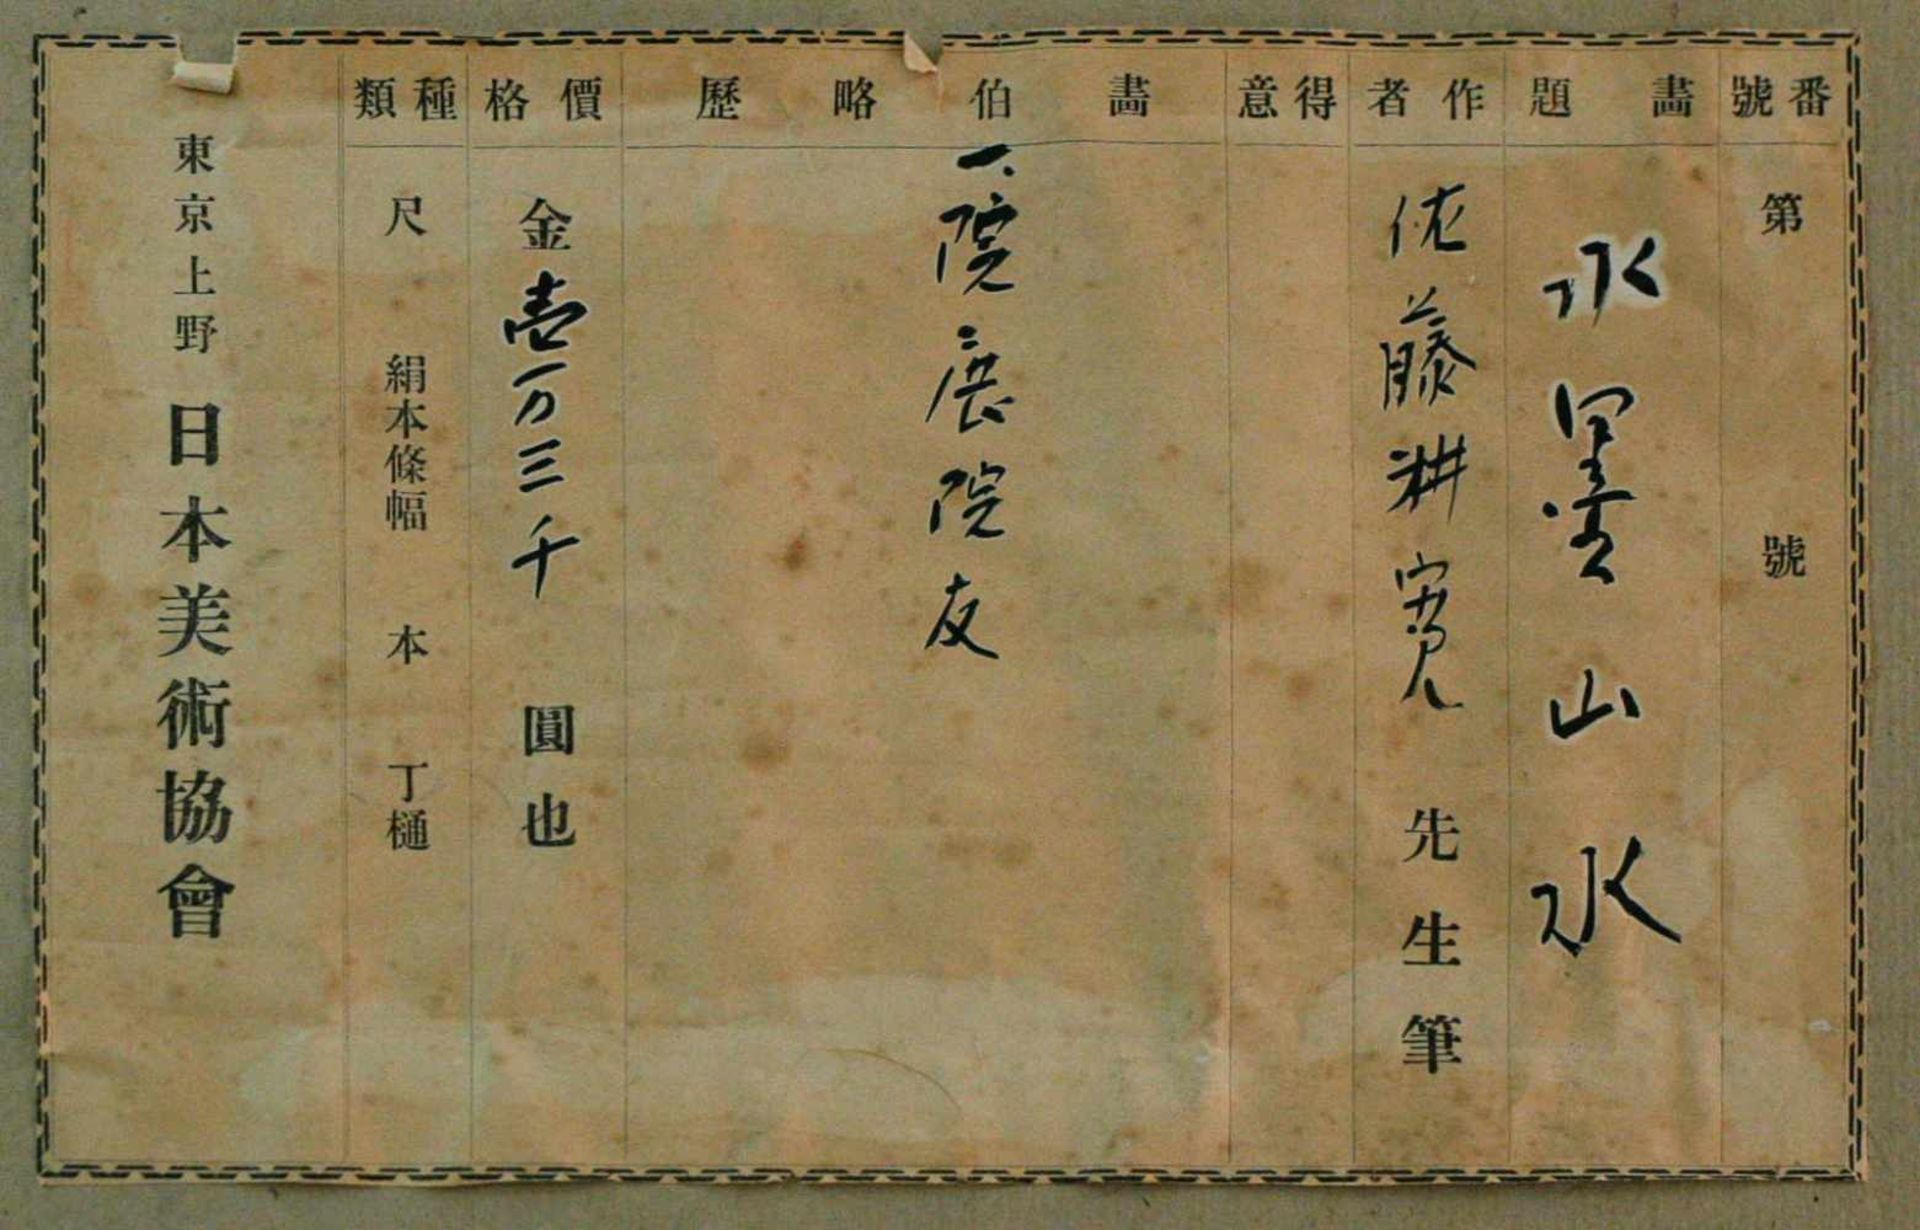 番號
第 號
畫題
水墨山水
作者
佐藤耕寛 先生筆
得意
畫伯略歴
一、院展院友
價格
金壱万三千 圓也
種類
尺 絹本條幅 本 丁樋
東京上野 日本美術協會